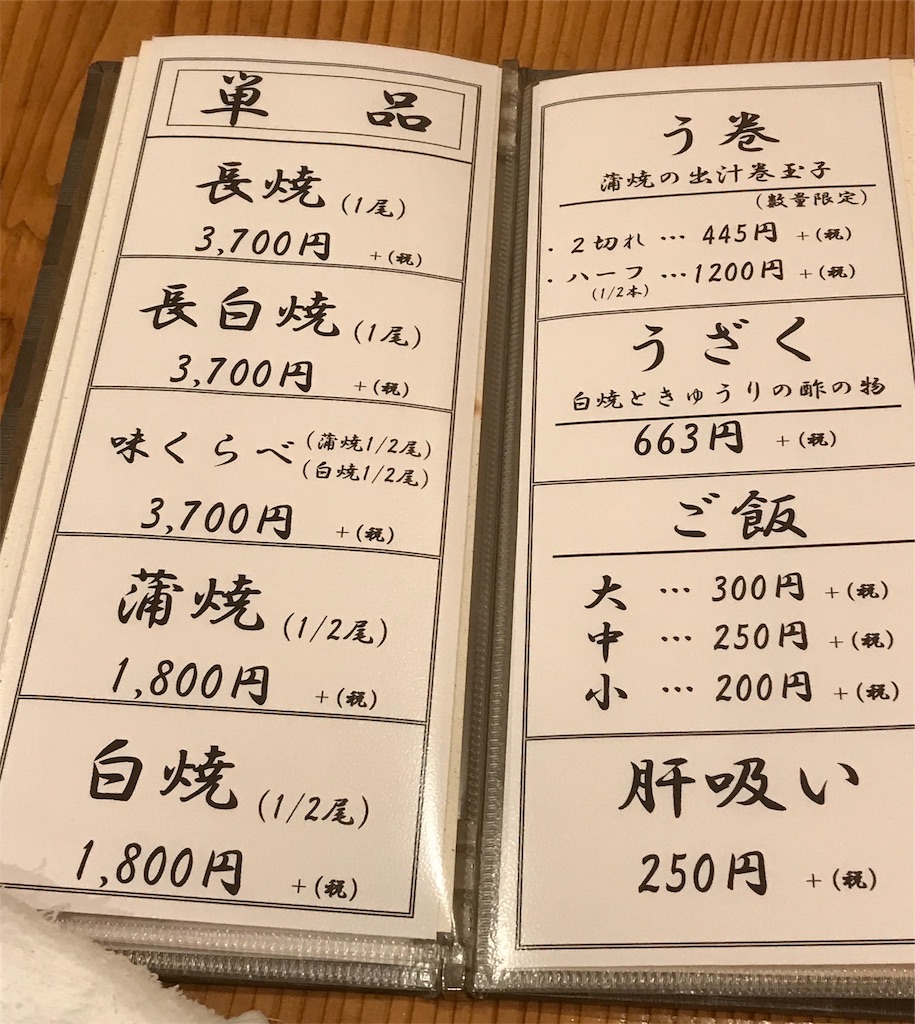 単品
長焼(1尾)
3,700円 +(税)
長白焼(1尾)
3,700円 +(税)
味くらべ(蒲焼1/2尾)
(白焼1/2尾)
3,700円 +(税)
蒲焼(1/2尾)
1,800円 +(税)
白焼(1/2尾)
1,800円 +(税)
う巻
蒲焼の出汁巻玉子
(数量限定)
・2切れ … 445円 +(税)
・ハーフ …1200円 +(税)
(1/2本)
うざく
白焼ときゅうりの酢の物
663円 +(税)
ご飯
大 … 300円 +(税)
中 … 250円 +(税)
小 … 200円 +(税)
肝吸い
250円 +(税)